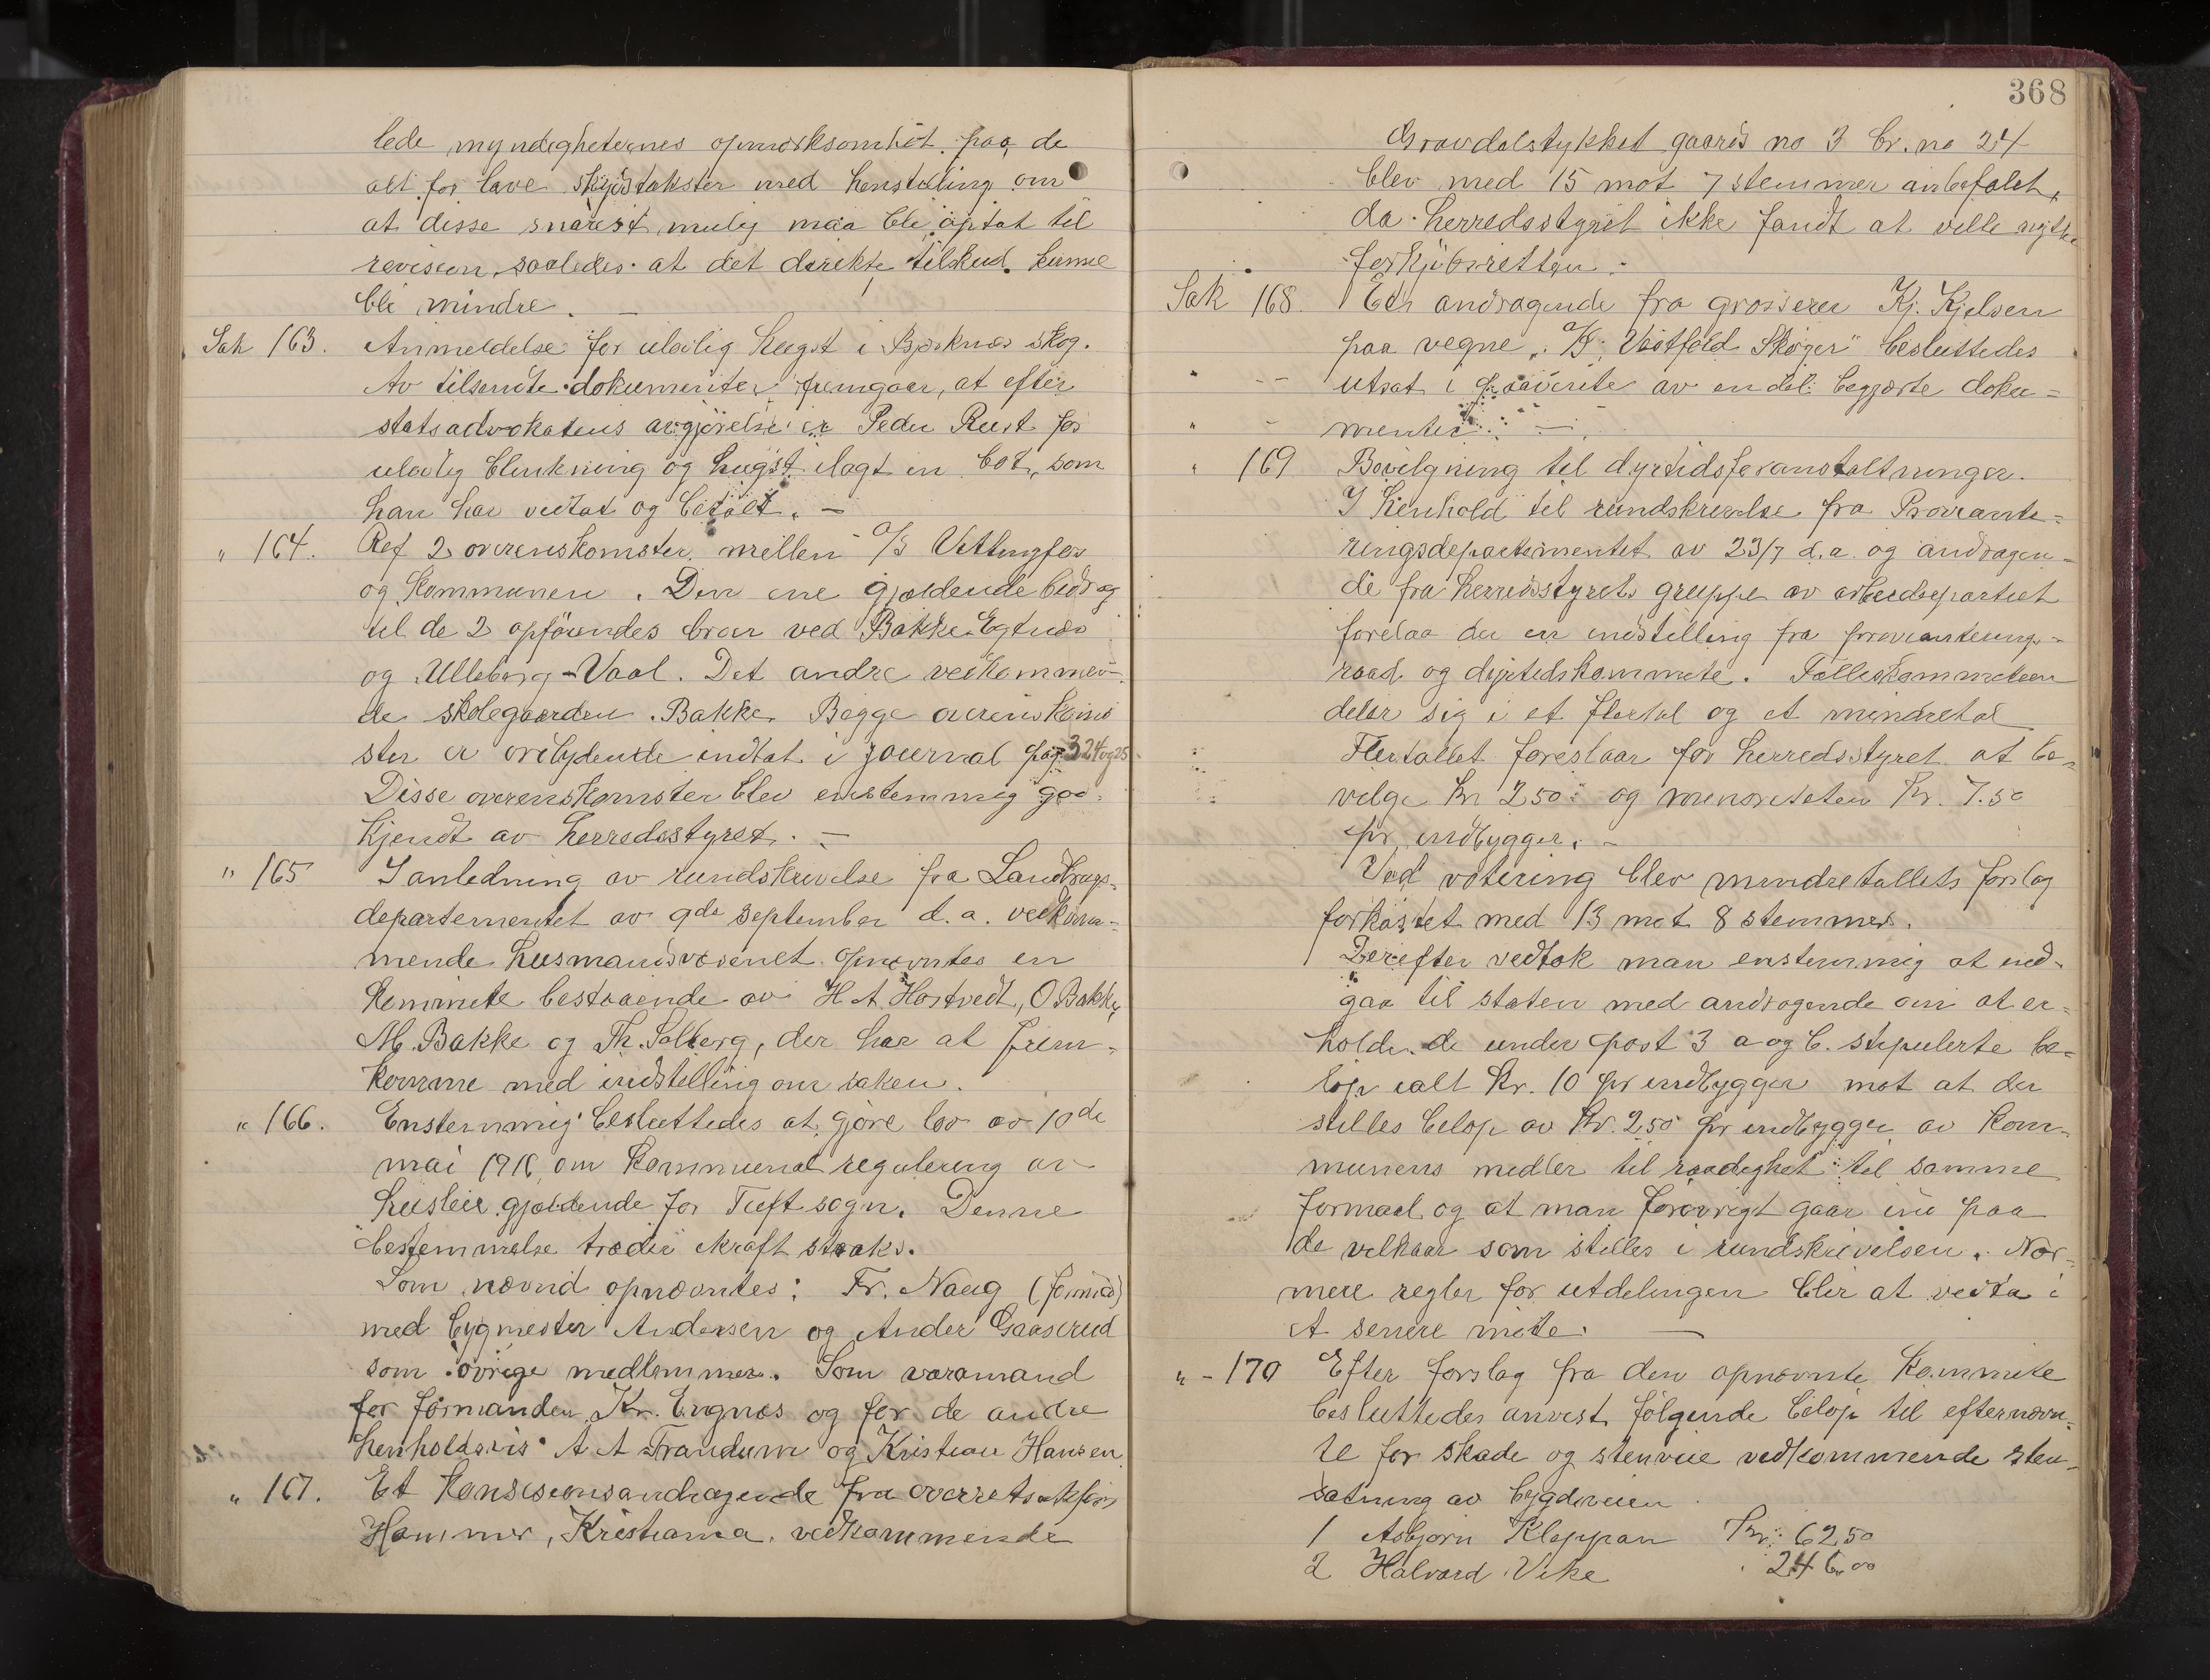 lede myndigheternes opmerksomhet paa de
alt for lave skydstakster med henstilling om
at disse snarest mulig maa bli optat til
revision, saaledes at det direkte tilskud kunne
bli mindre. —
Sak 163. Anmeldelse for ulovlig hugst i Bjerknes skog.
Av tilsendte dokumenter fremgaar, at efter
statsadvokatens avgjørelse er Peder Rust for
ulovlig blinkning og hugst ilagt en bot, som
han har vedtat og betalt. —
" 164. Ref 2 overenskomster mellem A/S Vittingfos
og kommunen. Den ene gjældende bidrag
til de 2 opførendes broer ved Bakke-Egtnæs
og Ulleberg-Vaal. Det andre vedkommen-
de skolegaarden Bakke. Begge overenskom-
ster er ordlydende indtat i journal pag 324 og 25
Disse overenskomster blev enstemmig god-
kjendt av herredsstyret. —
" 165 I anledning av rundskrivelse fra Landbrugs-
departementet av 9de september d.a. vedkom-
mende husmandsvæsenet opnævntes en
komite bestaaende av H A Hostvedt, O Bakke,
M. Bakke og Th. Solberg, der har at frem-
komme med indstilling om saken.
" 166. Enstemmig besluttedes at gjøre lov av 10de
mai 1916 om kommunal regulering av
husleie gjældende for Tuft sogn. Denne
bestemmelse træder ikraft straks.
Som nævnd opnævntes: Fr. Naug (formd)
med bygmester Andersen og Anders Gaaserud
som øvrige medlemmer. Som varamand
for formanden Kr. Engnæs og for de andre
henholdsvis A A Trandum og Kristian Hansen
" 167. Et konsesionsandragende fra overretssakfører
Hammer, Kristiania, vedkommende
368
Gravdalstykket gaards no 3 br. no 24
blev med 15 mot 7 stemmer anbefalet,
da herredsstyret ikke fandt at ville nytte
forkjøbsretten.
Sak 168. Et andragende fra grosserer Kj. Kjelsen
paa vegne "A/S Vestfold Skoger" besluttedes
utsat i paavente av en del begjærte doku-
menter. —
" 169 Bevilgning til dyrtidsforanstaltninger.
I henhold til rundskrivelse fra Proviante-
ringsdepartementet av 23/7 d.a. og andragen-
de fra herredsstyrets gruppe av arbeiderpartiet
forelaa der en indstilling fra provianterings-
raad og dyrtidskommite. Felleskommiteen
deler sig i et flertal og et mindretal
Flertallet foreslaar for herredsstyret at be-
vilge Kr 2.50 og minoriteten Kr. 7.50
pr. indbygger. -
Ved votering blev mindretallets forslag
forkastet med 13 mot 8 stemmer.
Derefter vedtok man enstemmig at ind-
gaa til staten med andragende om at er-
holde de under post 3 a og b. stipulerte be-
løp ialt Kr. 10 pr indbygger mot at der
stilles beløp av Kr. 2.50 pr indbygger av kom-
munens midler til raadighet til samme
formaal og at man forøvrigt gaar ind paa
de vilkaar som stilles i rundskrivelsen. Nær-
mere regler for utdelingen blir at vedta i
et senere møte. —
" - 170 Efter forslag fra den opnævnte Kommite
besluttedes anvist følgende beløp til efternævn-
te for skade og stenveie vedkommende sten-
satning av bygdeveien
1 Asbjørn Kleppan Kr. 62.50
2 Halvard Vike " 246.00